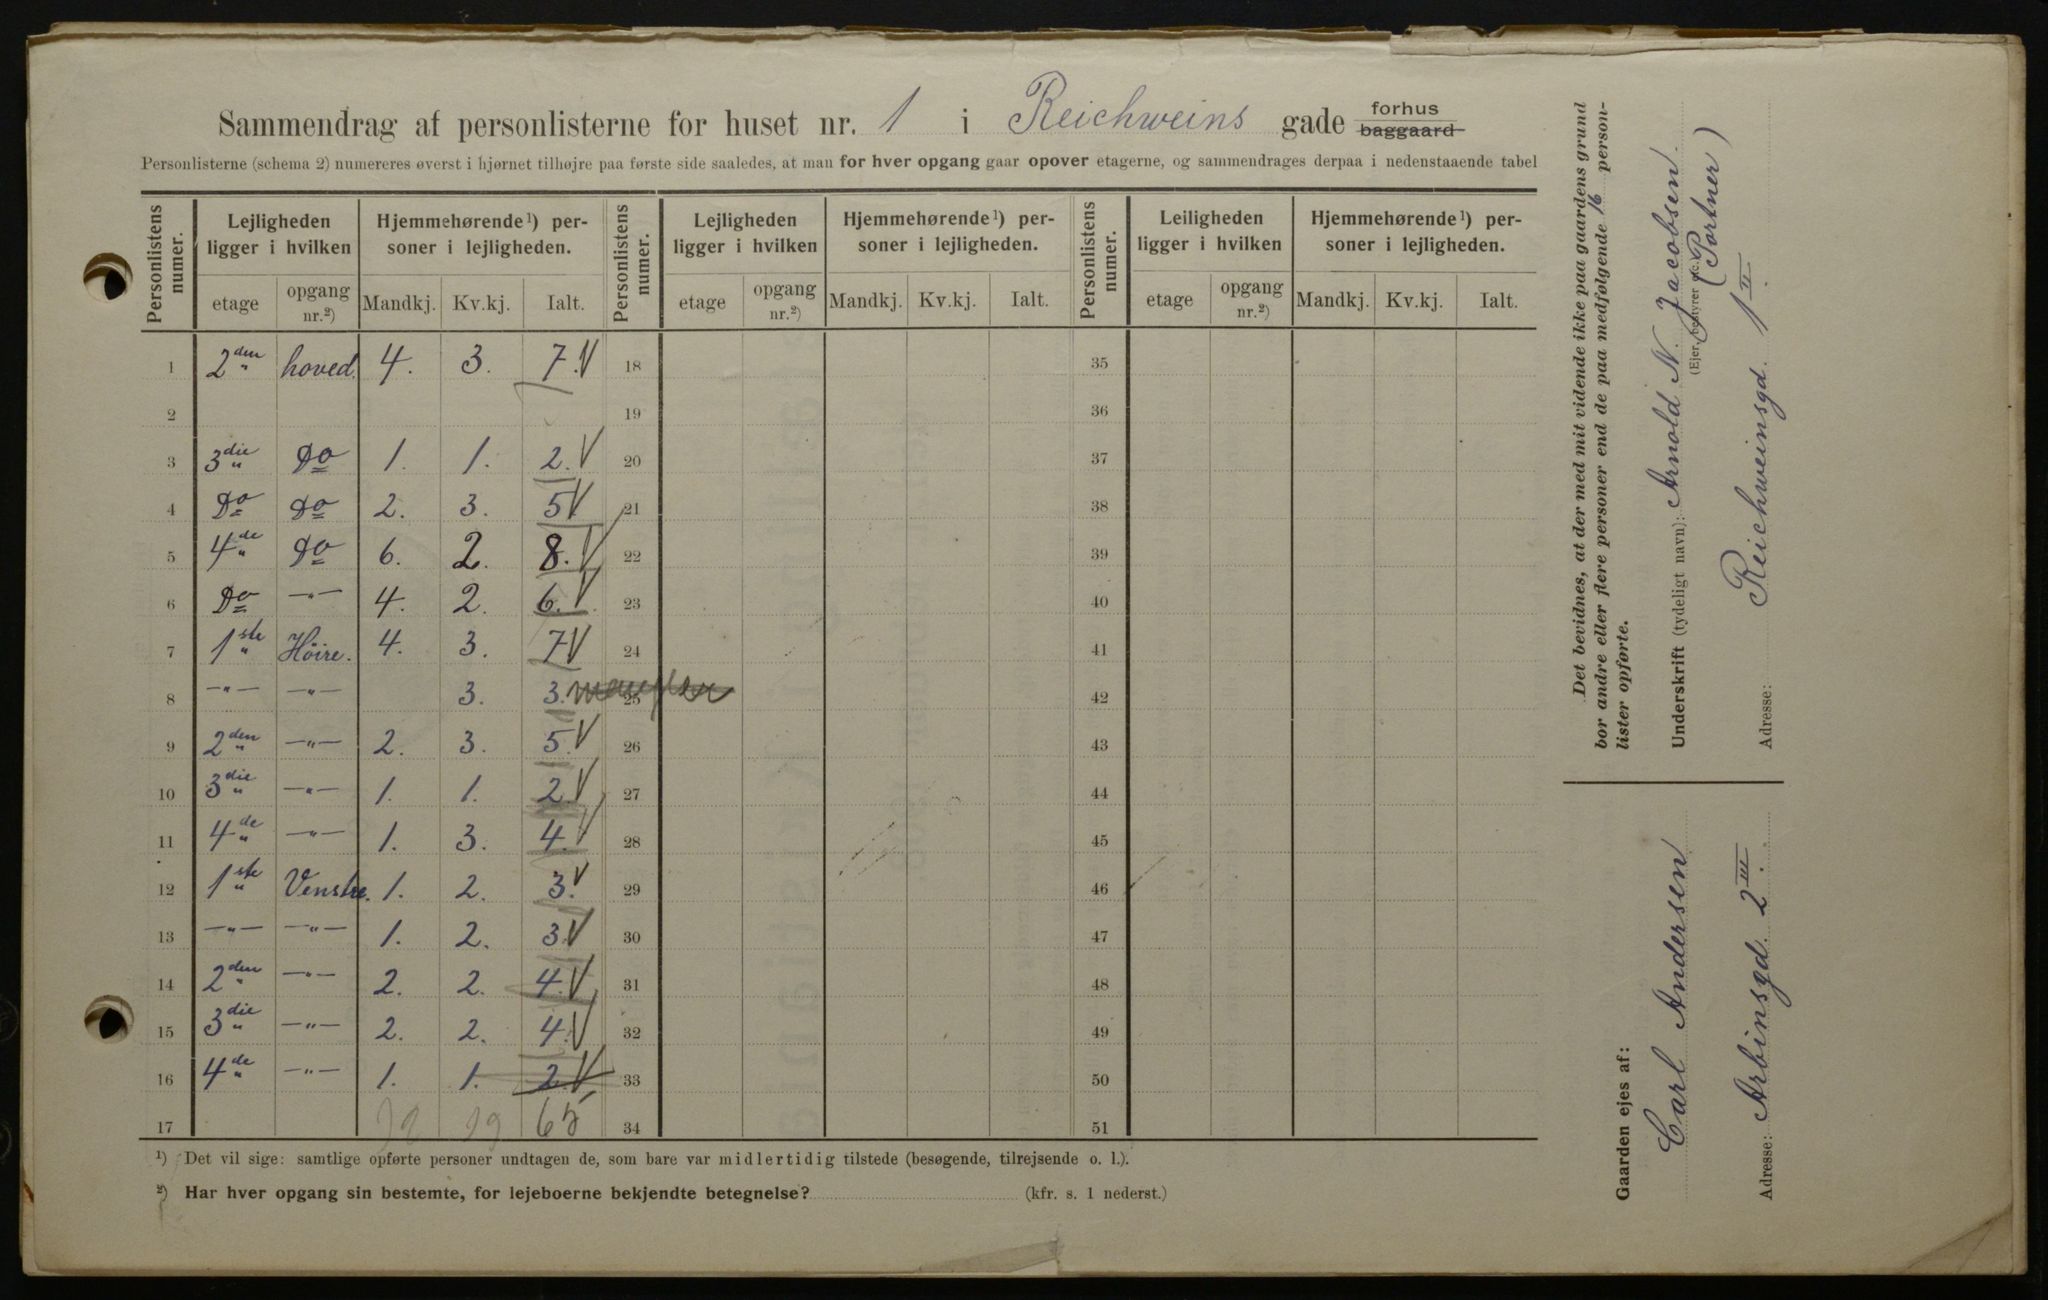 Sammendrag af personlisterne for huset nr. 1 i Reichweins gade forhus baggaard
Personlisterne (schema 2) numereres øverst i hjørnet tilhøjre paa første side saaledes, at man for hver opgang gaar opover etagerne, og sammendrages derpaa i nedenstaaende tabel
Personlistens numer. Lejligheden ligger i hvilken Hjemmehørende¹) personer i lejligheden. Personlistens numer. Lejligheden ligger i hvilken Hjemmehørende¹) personer i lejligheden. Personlistens numer. Leiligheden ligger i hvilken Hjemmehørende¹) personer i lejligheden.
etage opgang nr.²) Mandkj. Kv.kj. Ialt. etage opgang nr.²) Mandkj. Kv.kj. Ialt. etage opgang nr.²) Mandkj. Kv.kj. Ialt.
1 2den hoved. 4. 3. 7. V 18 35
2 19 36
3 3die Do 1. 1. 2. V 20 37
4 Do Do 2. 3. 5 V 21 38
5 4de Do 6. 2. 8. V 22 39
6 Do —"— 4. 2. 6. V 23 40
7 1ste Höire. 4. 3. 7 V 24 41
8 —"— —"— 3. 3. mangler 25 42
9 2den —"— 2. 3. 5. V 26 43
10 3die —"— 1. 1. 2. V 27 44
11 4de —"— 1. 3. 4. V 28 45
12 1ste Venstre. 1. 2. 3. V 29 46
13 —"— —"— 1. 2. 3. V 30 47
14 2den —"— 2. 2. 4. V 31 48
15 3die —"— 2. 2. 4. V 32 49
16 4de —"— 1. 1. 2. V 33 50
17 65 34 51
¹) Det vil sige: samtlige opførte personer undtagen de, som bare var midlertidig tilstede (besøgende, tilrejsende o. l.).
²) Har hver opgang sin bestemte, for lejeboerne bekjendte betegnelse? (kfr. s. 1 nederst.)
Det bevidnes, at der med mit vidende ikke paa gaardens grund
bor andre eller flere personer end de paa medfølgende 16 person-
lister opførte.
Underskrift (tydeligt navn): Arnold N. Jacobsen.
(Ejer, bestyrer etc.) (Portner)
Adresse: Reichweinsgd. 1 II.
Gaarden ejes af:
Carl Andersen
Adresse: Arbinsgd. 2 III.